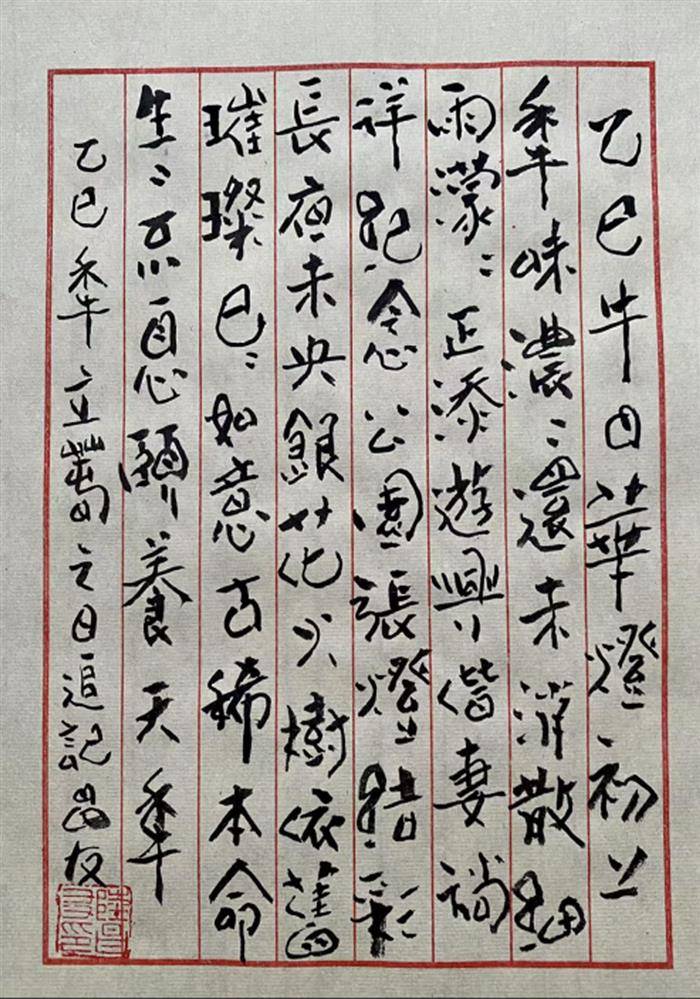 乙巳牛日華燈初上
年味濃濃還未消散細
雨濛濛正添遊興偕妻徜
徉紀念公園張燈結彩
長夜未央銀花火樹依舊
璀璨巳巳如意古稀本命
生生不息頤養天年
乙巳年立萬之日追記昌友